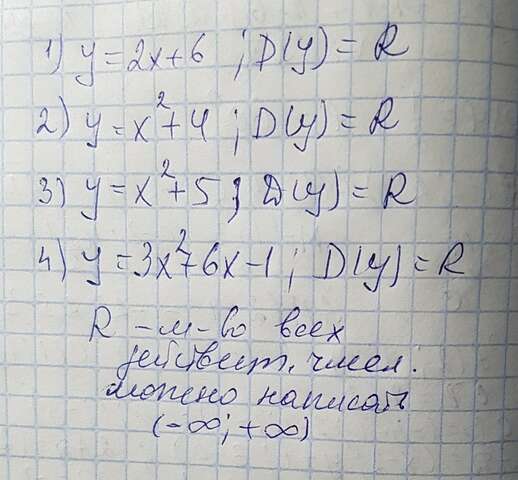 1) y = 2x + 6 ; D(y) = R
2) y = x² + 4 ; D(y) = R
3) y = x² + 5 ; D(y) = R
4) y = 3x² + 6x - 1 ; D(y) = R
R - м-во всех
действит. чисел.
можно написать
(-∞; +∞)